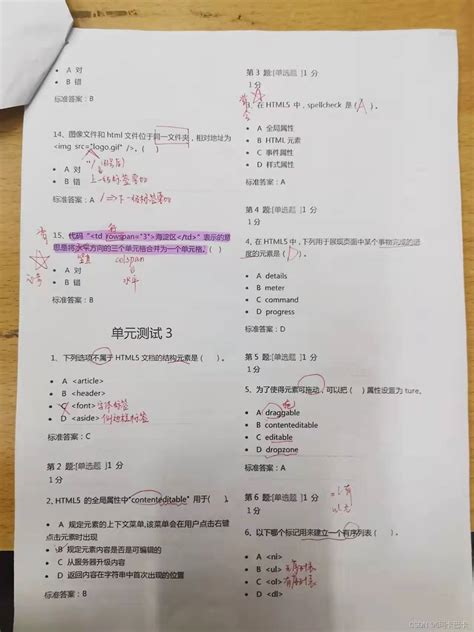 • A 对
• B 错
标准答案：B
14、图像文件和 html 文件位于同一文件夹，相对地址为
<img src="logo.gif" />。（ ）
• A 对
• B 错
标准答案：A
15、代码 "<td rowspan="3">海淀区</td>" 表示的意
思是将水平方向的三个单元格合并为一个单元格。（ ）
colspan
• A 对
• B 错
水平
标准答案：B
单元测试 3
1、下列选项不属于 HTML5 文档的结构元素是（ ）。
• A <article>
• B <header>
• C <font> 字体标签
• D <aside> 侧边栏标签
标准答案：C
第 2 题:[单选题 ]1 分
2、HTML5 的全局属性中"contenteditable" 用于（ ）。
• A 规定元素的上下文菜单,该菜单会在用户点击右键
点击元素时出现
• B 规定元素内容是否是可编辑的
• C 从服务器升级内容
• D 返回内容在字符串中首次出现的位置
标准答案：B
第 3 题:[单选题 ]1 分
3、在 HTML5 中，spellcheck 是（ A ）。
• A 全局属性
• B HTML 元素
• C 事件属性
• D 样式属性
标准答案：A
第 4 题:[单选题 ]
1 分
4、在 HTML5 中,下列用于展现页面中某个事物完成的进
度的元素是（ D ）。
• A details
• B meter
• C command
• D progress
标准答案：D
第 5 题:[单选题 ]
1 分
5、为了使得元素可拖动，可以把（ ）属性设置为 ture。
• A draggable
• B contenteditable
• C editable
• D dropzone
标准答案：A
第 6 题:[单选题 ]
1 分
6、以下哪个标记用来建立一个有序列表（ ）。
• A <nl>
• B <ul> 无序列表
• C <ol> 有序列表
• D <dl>